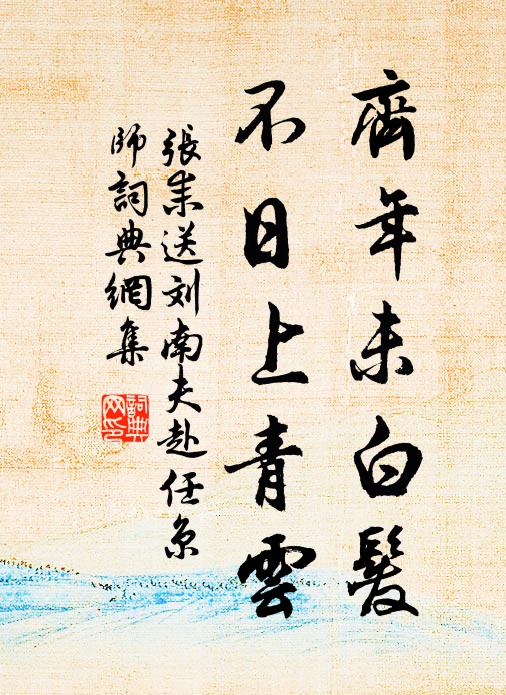 齊年未白髮
不日上青雲
張耒送刘南夫赴任京
師詞典網集
詞典
网印